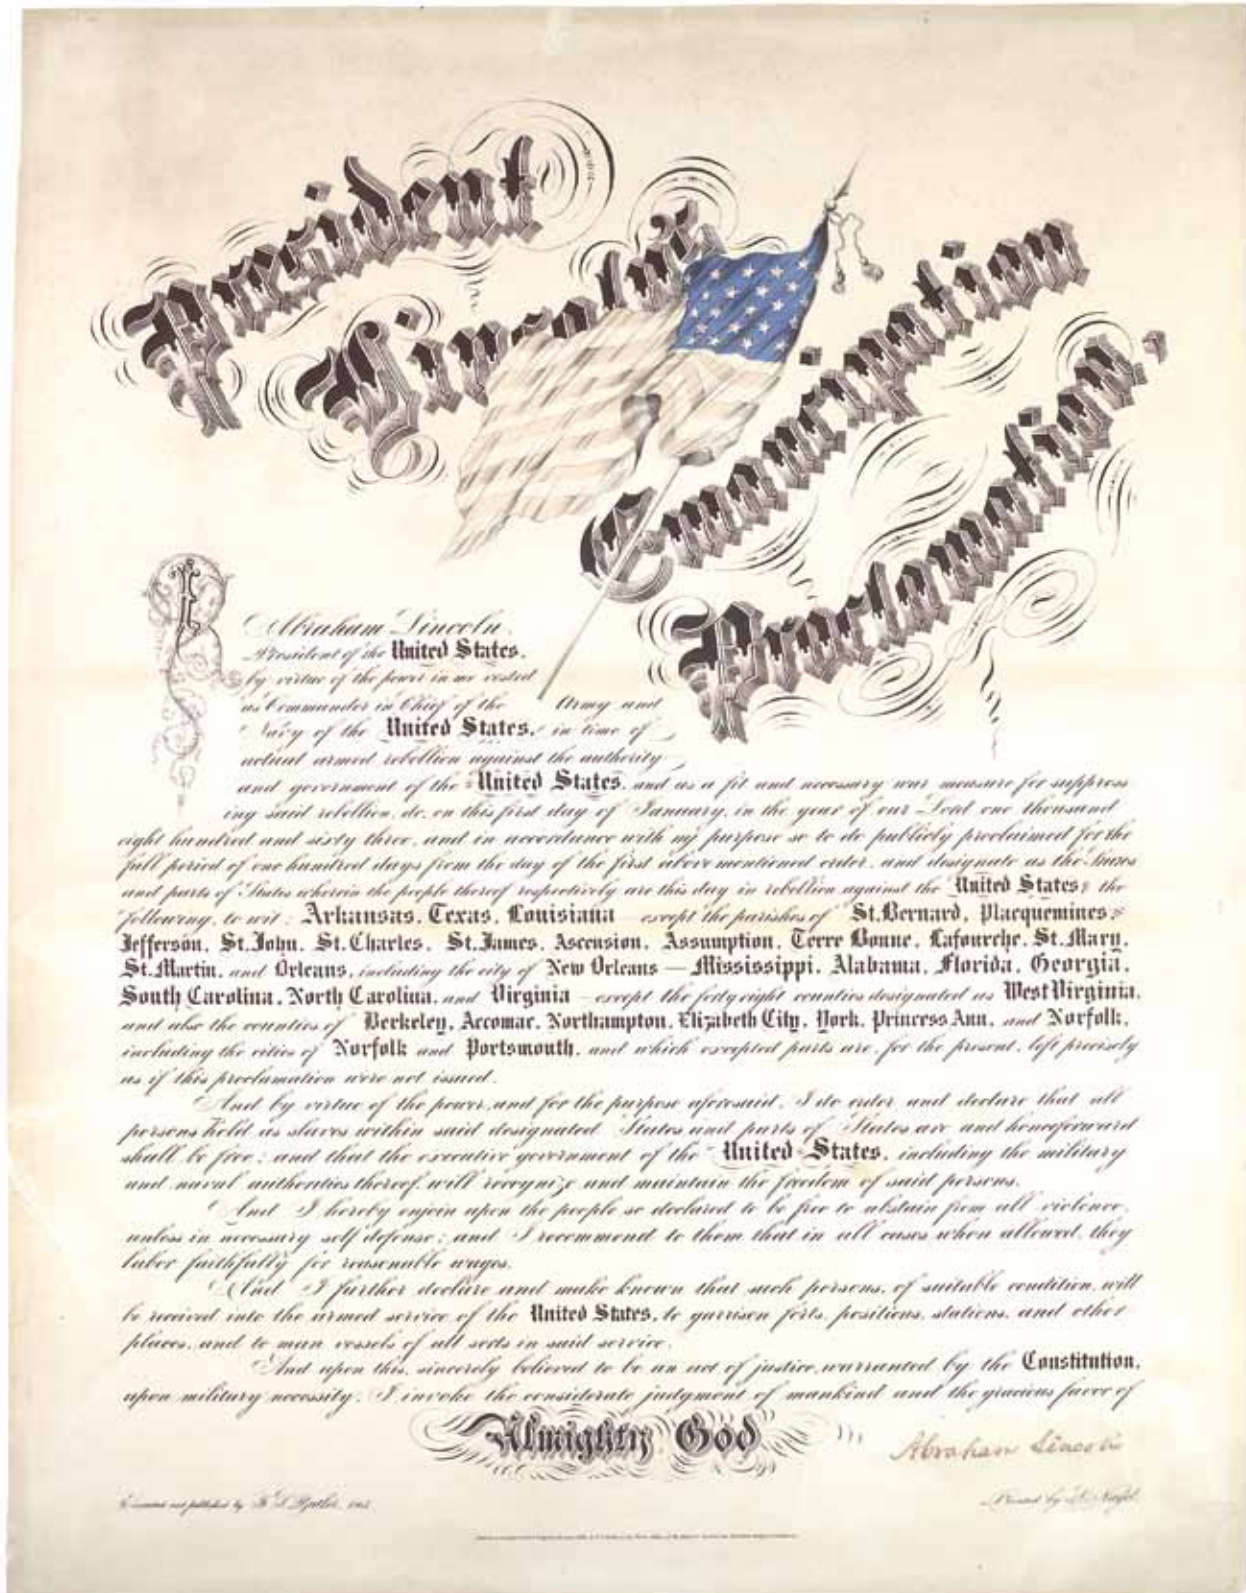 President
Lincoln's
Emancipation
Proclamation.
I
Abraham Lincoln,
President of the United States,
by virtue of the power in me vested
as Commander in Chief of the Army and
Navy of the United States, in time of
actual armed rebellion against the authority
and government of the United States, and as a fit and necessary war measure for suppress
ing said rebellion, do, on this first day of January, in the year of our Lord one thousand
eight hundred and sixty three, and in accordance with my purpose so to do publicly proclaimed for the
full period of one hundred days from the day of the first above mentioned order, and designate as the States
and parts of States wherein the people thereof respectively are this day in rebellion against the United States; the
following, to wit: Arkansas, Texas, Louisiana – except the parishes of St. Bernard, Placquemines,
Jefferson, St. John, St. Charles, St. James, Ascension, Assumption, Terre Bonne, Lafourche, St. Mary,
St. Martin, and Orleans, including the city of New Orleans — Mississippi, Alabama, Florida, Georgia,
South Carolina, North Carolina, and Virginia – except the forty eight counties designated as West Virginia,
and also the counties of Berkeley, Accomac, Northampton, Elizabeth City, York, Princess Ann, and Norfolk,
including the cities of Norfolk and Portsmouth, and which excepted parts are, for the present, left precisely
as if this proclamation were not issued.
And by virtue of the power, and for the purpose aforesaid, I do order and declare that all
persons held as slaves within said designated States and parts of States are and henceforward
shall be free; and that the executive government of the United States, including the military
and naval authorities thereof, will recognize and maintain the freedom of said persons.
And I hereby enjoin upon the people so declared to be free to abstain from all violence,
unless in necessary self defense; and I recommend to them that in all cases when allowed, they
labor faithfully for reasonable wages.
And I further declare and make known that such persons, of suitable condition, will
be received into the armed service of the United States, to garrison forts, positions, stations, and other
places, and to man vessels of all sorts in said service.
And upon this, sincerely believed to be an act of justice, warranted by the Constitution,
upon military necessity, I invoke the considerate judgment of mankind and the gracious favor of
Almighty God
Abraham Lincoln
and published by
Printed by